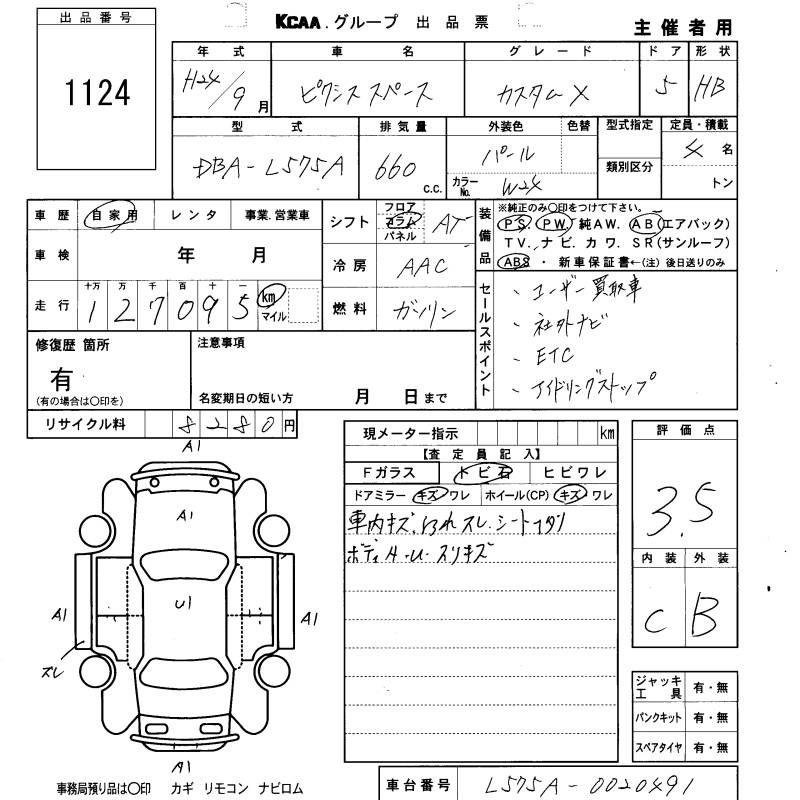 KCAA.グループ 出品票
主催者用
出品番号
1124
年式 車名 グレード ドア 形状
H24/9月 ピクシススペース カスタムX 5 HB
型式 排気量 外装色 色替 型式指定 定員・積載
DBA-L575A 660 c.c. パール 類別区分 4名
カラーNo. W24 トン
車歴 自家用 レンタ 事業.営業車
シフト フロア コラム パネル AT
装備品 ※純正のみ〇印をつけて下さい。
PS. PW. 純AW. AB(エアバッグ)
TV. ナビ. カワ. SR(サンルーフ)
ABS ・ 新車保証書←(注)後日送りのみ
車検 年 月
冷房 AAC
走行 十万 万 千 百 十 一
127095 km マイル
燃料 ガソリン
セールスポイント
・ユーザー買取車
・社外ナビ
・ETC
・アイドリングストップ
修復歴 箇所
有
(有の場合は〇印を)
注意事項
名変期日の短い方 月 日まで
リサイクル料 8280円
現メーター指示 km
【査定員記入】
Fガラス トビ石 ヒビワレ
ドアミラー キズ ワレ ホイール(CP) キズ ワレ
車内キズ.汚れ スレ.シートコゲ
ボディA.U.スリキズ
評価点
3.5
内装 外装
C B
A1
A1
U1
A1 A1
スレ
A1
ジャッキ工具 有・無
パンクキット 有・無
スペアタイヤ 有・無
事務局預り品は〇印 カギ リモコン ナビロム
車台番号 L575A-0020491